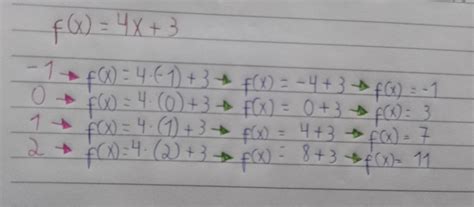 f(x) = 4x + 3
-1 → f(x) = 4·(-1) + 3 → f(x) = -4 + 3 → f(x) = -1
0 → f(x) = 4·(0) + 3 → f(x) = 0 + 3 → f(x) = 3
1 → f(x) = 4·(1) + 3 → f(x) = 4 + 3 → f(x) = 7
2 → f(x) = 4·(2) + 3 → f(x) = 8 + 3 → f(x) = 11